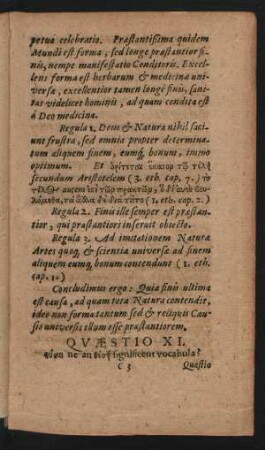 petua celebratio. Præstantißima quidem
Mundi est forma, sed longe præstantior fi-
nis, nempe manifestatio Conditoris. Excel-
lens forma est herbarum & medicina uni-
versæ, excellentior tamen longè finis, sani-
tas videlicet hominis, ad quam condita est
à Deo medicina.
Regula 1. Deus & Natura nihil faci-
unt frustra, sed omnia propter determina-
tum aliquem finem, eumq́; bonum, immo
optimum.
secundum Aristotelem (3. eth. cap. 7.) τὸ
(1. eth. cap. 7.)
Regula 2. Finis ille semper est præstan-
tior, qui præstantiori inservit obiecto.
Regula 3. Ad imitationem Naturæ
Artes quoq; & scientiæ universæ ad finem
aliquem eumq; bonum contendunt (1. eth.
cap. 1.)
Concludimus ergo: Quia finis ultima
est causa, ad quam tota Natura contendit,
ideo non forma tantum sed & reliquis Cau-
sis universis illum esse præstantiorem.
QVÆSTIO XI.
ne an significent vocabula?
C 3 Quæstio